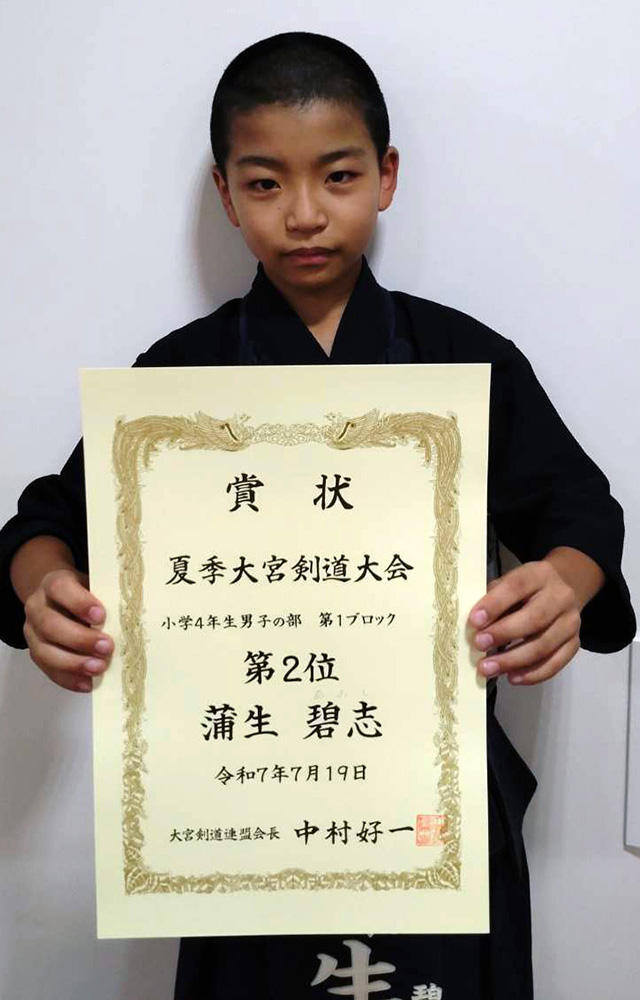 賞状
夏季大宮剣道大会
小学4年生男子の部 第1ブロック
第2位
あおし
蒲生 碧志
令和7年7月19日
大宮剣道連盟会長 中村好一
生
碧